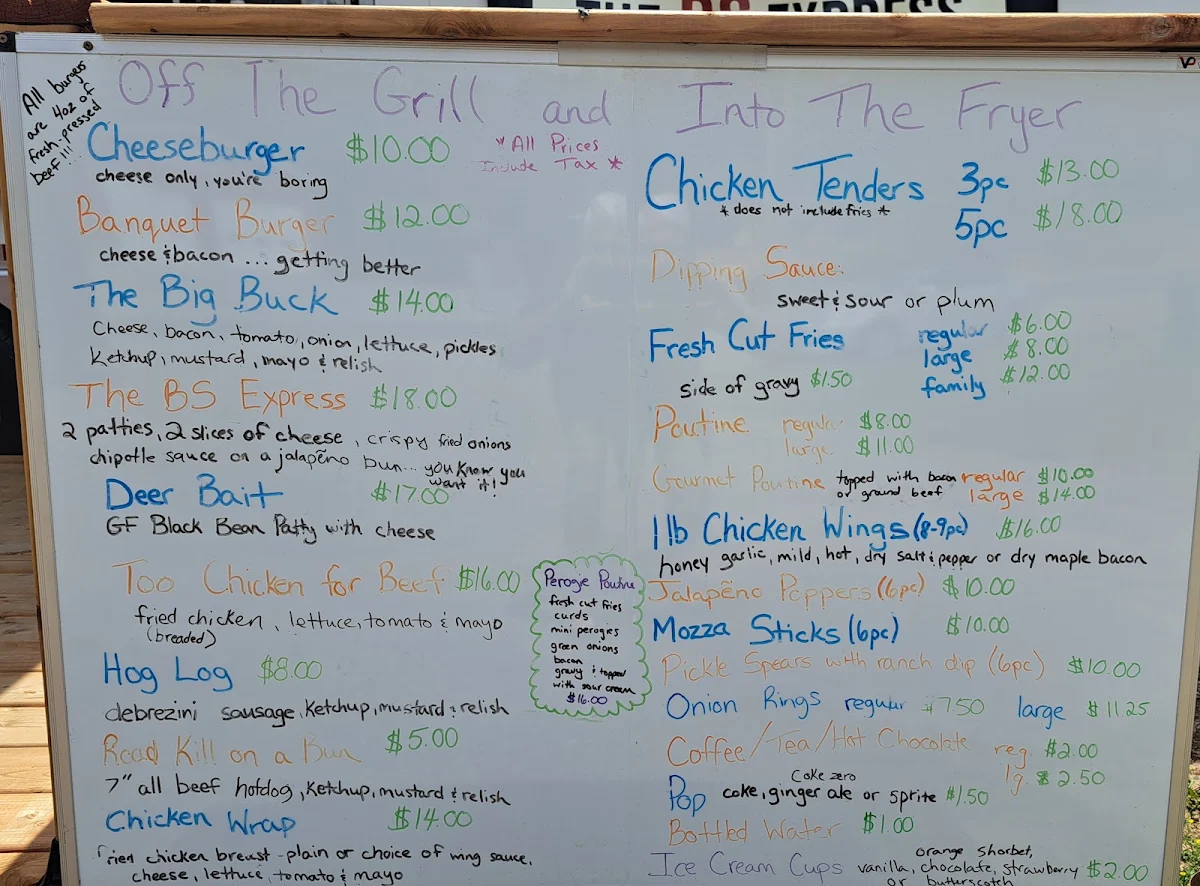 THE BS EXPRESS
All burgers
are 4oz of
fresh-pressed
beef!!!
Off The Grill and Into The Fryer
* All Prices
Include Tax *
Cheeseburger $10.00
cheese only, you're boring
Banquet Burger $12.00
cheese & bacon ... getting better
The Big Buck $14.00
Cheese, bacon, tomato, onion, lettuce, pickles
Ketchup, mustard, mayo & relish
The BS Express $18.00
2 patties, 2 slices of cheese, crispy fried onions
chipotle sauce on a jalapẽno bun... you know you
want it!
Deer Bait $17.00
GF Black Bean Patty with cheese
Too Chicken for Beef $16.00
fried chicken, lettuce, tomato & mayo
(breaded)
Hog Log $8.00
debrezini sausage, Ketchup, mustard & relish
Road Kill on a Bun $5.00
7" all beef hotdog, Ketchup, mustard & relish
Chicken Wrap $14.00
fried chicken breast - plain or choice of wing sauce,
cheese, lettuce, tomato & mayo
Perogie Poutine
fresh cut fries
curds
mini perogies
green onions
bacon
gravy & topped
with sour cream
$16.00
Chicken Tenders 3pc $13.00
* does not include fries *
5pc $18.00
Dipping Sauce:
sweet & sour or plum
Fresh Cut Fries regular $6.00
large $8.00
family $12.00
side of gravy $1.50
Poutine regular $8.00
large $11.00
Gourmet Poutine topped with bacon regular $10.00
or ground beef large $14.00
1 lb Chicken Wings (8-9pc) $16.00
honey garlic, mild, hot, dry salt & pepper or dry maple bacon
Jalapẽno Poppers (6pc) $10.00
Mozza Sticks (6pc) $10.00
Pickle Spears with ranch dip (6pc) $10.00
Onion Rings regular $7.50 large $11.25
Coffee/Tea/Hot Chocolate reg. $2.00
lg. $2.50
Coke zero
Pop coke, ginger ale or sprite $1.50
Bottled Water $1.00
orange shorbet,
Ice Cream Cups vanilla, chocolate, strawberry $2.00
or butterscotch